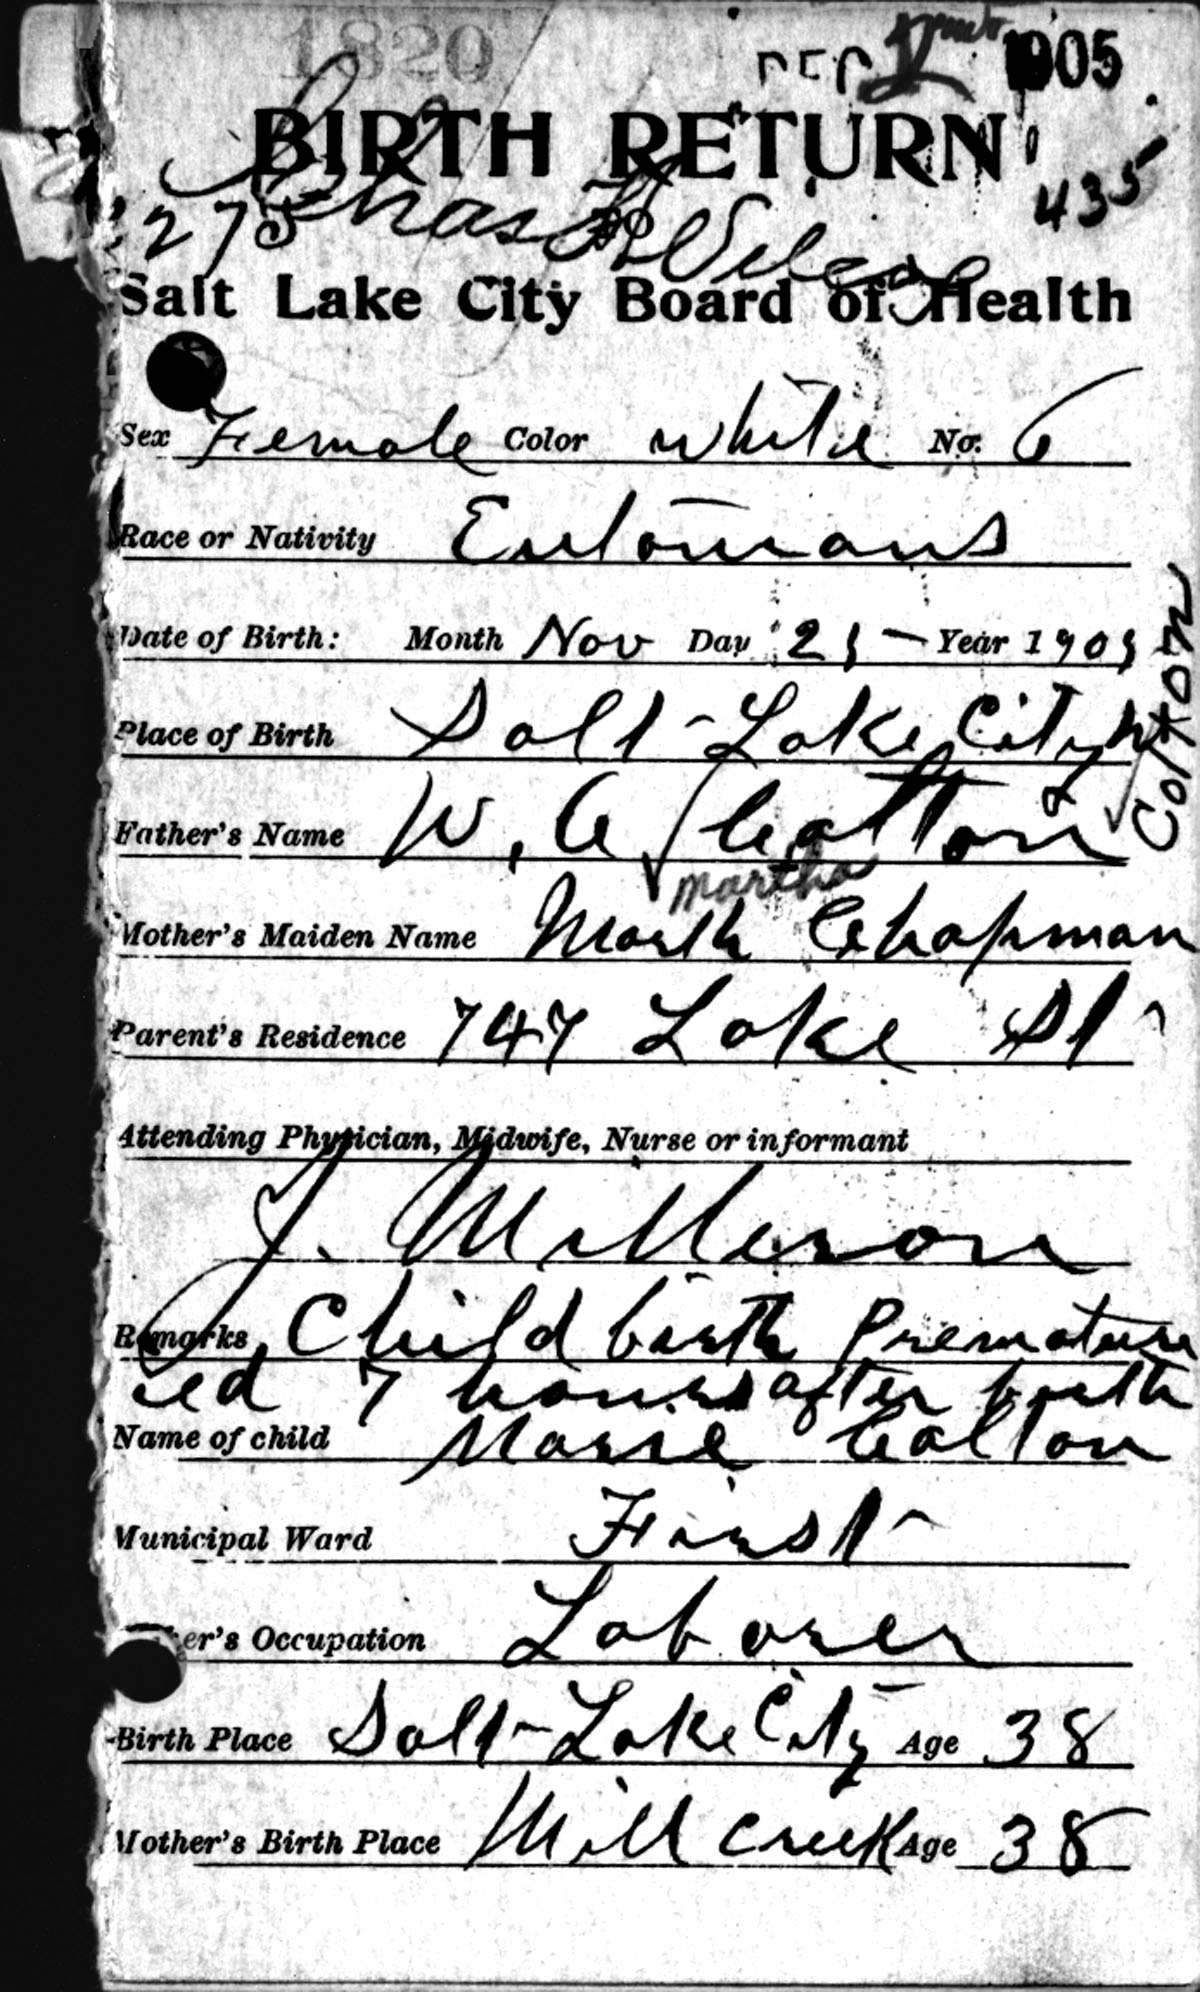 1820
DEC 1905
BIRTH RETURN
435
275 Chas
Salt Lake City Board of Health
Sex Female Color white No. 6
Race or Nativity
Date of Birth: Month Nov Day 21 Year 1905
Place of Birth Salt Lake City
Colton
Father's Name W. C Colton
Martha
Mother's Maiden Name Marth Chapman
Parent's Residence 747 Lake St
Attending Physician, Midwife, Nurse or informant
J. Milleson
Remarks Child birth Premature
ied 7 hours after birth
Name of child Marie Colton
Municipal Ward First
er's Occupation Laborer
Birth Place Salt Lake City Age 38
Mother's Birth Place Mill creek Age 38